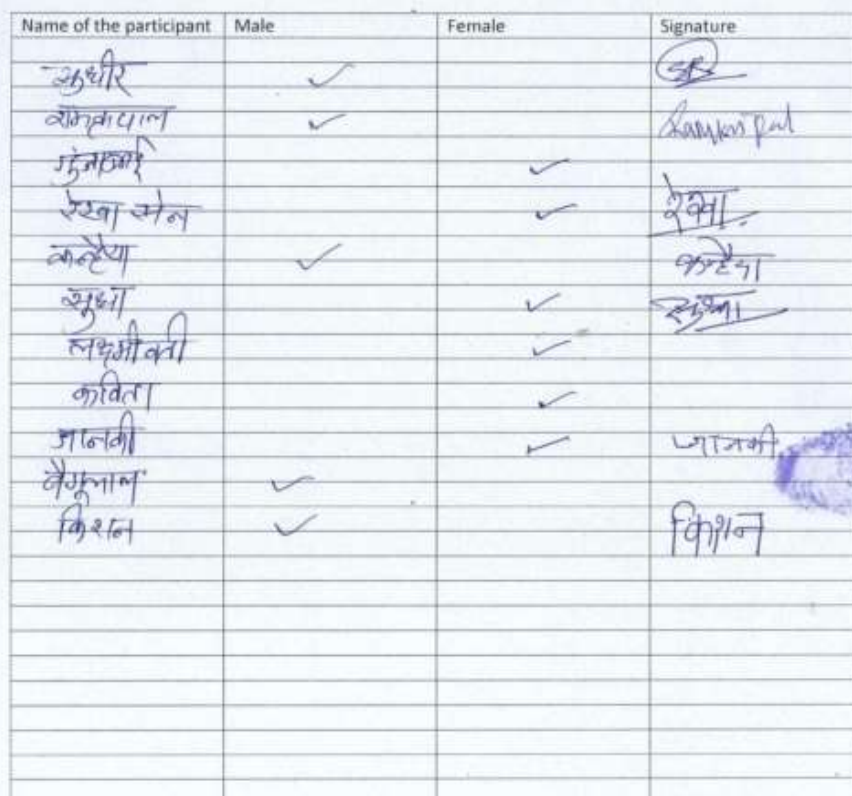 Name of the participant Male Female Signature
सुधीर ✓
रामकृपाल ✓ Ramkripal
गुंजाबाई ✓
रेखा सेन ✓ रेखा
कन्हैया ✓ कन्हैया
सुधा ✓ सुधा
लक्ष्मीवती ✓
कविता ✓
जानकी ✓ जानकी
बैगूलाल ✓
किशन ✓ किशन